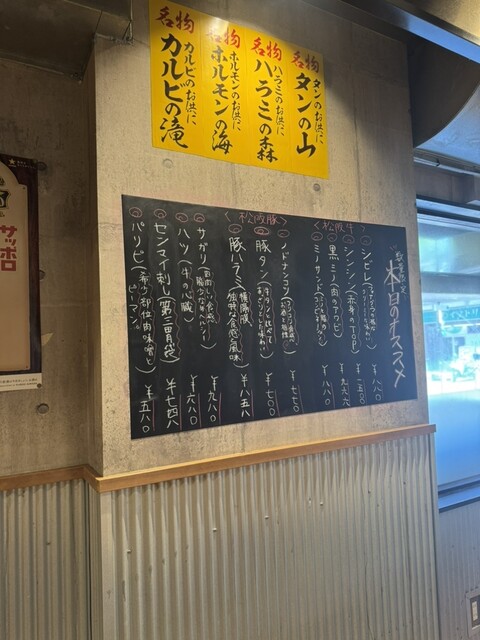 名物
タンのお供に
タンの山
名物
ハラミのお供に
ハラミの森
名物
ホルモンのお供に
ホルモンの海
名物
カルビのお供に
カルビの滝
数量限定
本日のオススメ
〈松阪牛〉
シビレ
¥八八〇
シンシン(赤身のTOP)
黒ミノ(肉のアワビ)
¥九六八
ミノサンド
¥八八〇
〈松阪豚〉
ノドナンコツ
¥七七〇
豚タン(牛タンと比べてあっさりとした味わい)
¥七〇〇
豚ハラミ(横隔膜 独特な食感と風味)
¥八五八
サガリ
¥九八〇
ハツ(牛の心臓)
¥六八〇
センマイ刺し(第三胃袋)
¥七四八
パリピ(希少部位肉味噌とピーマン)
¥五八〇
サッポロ